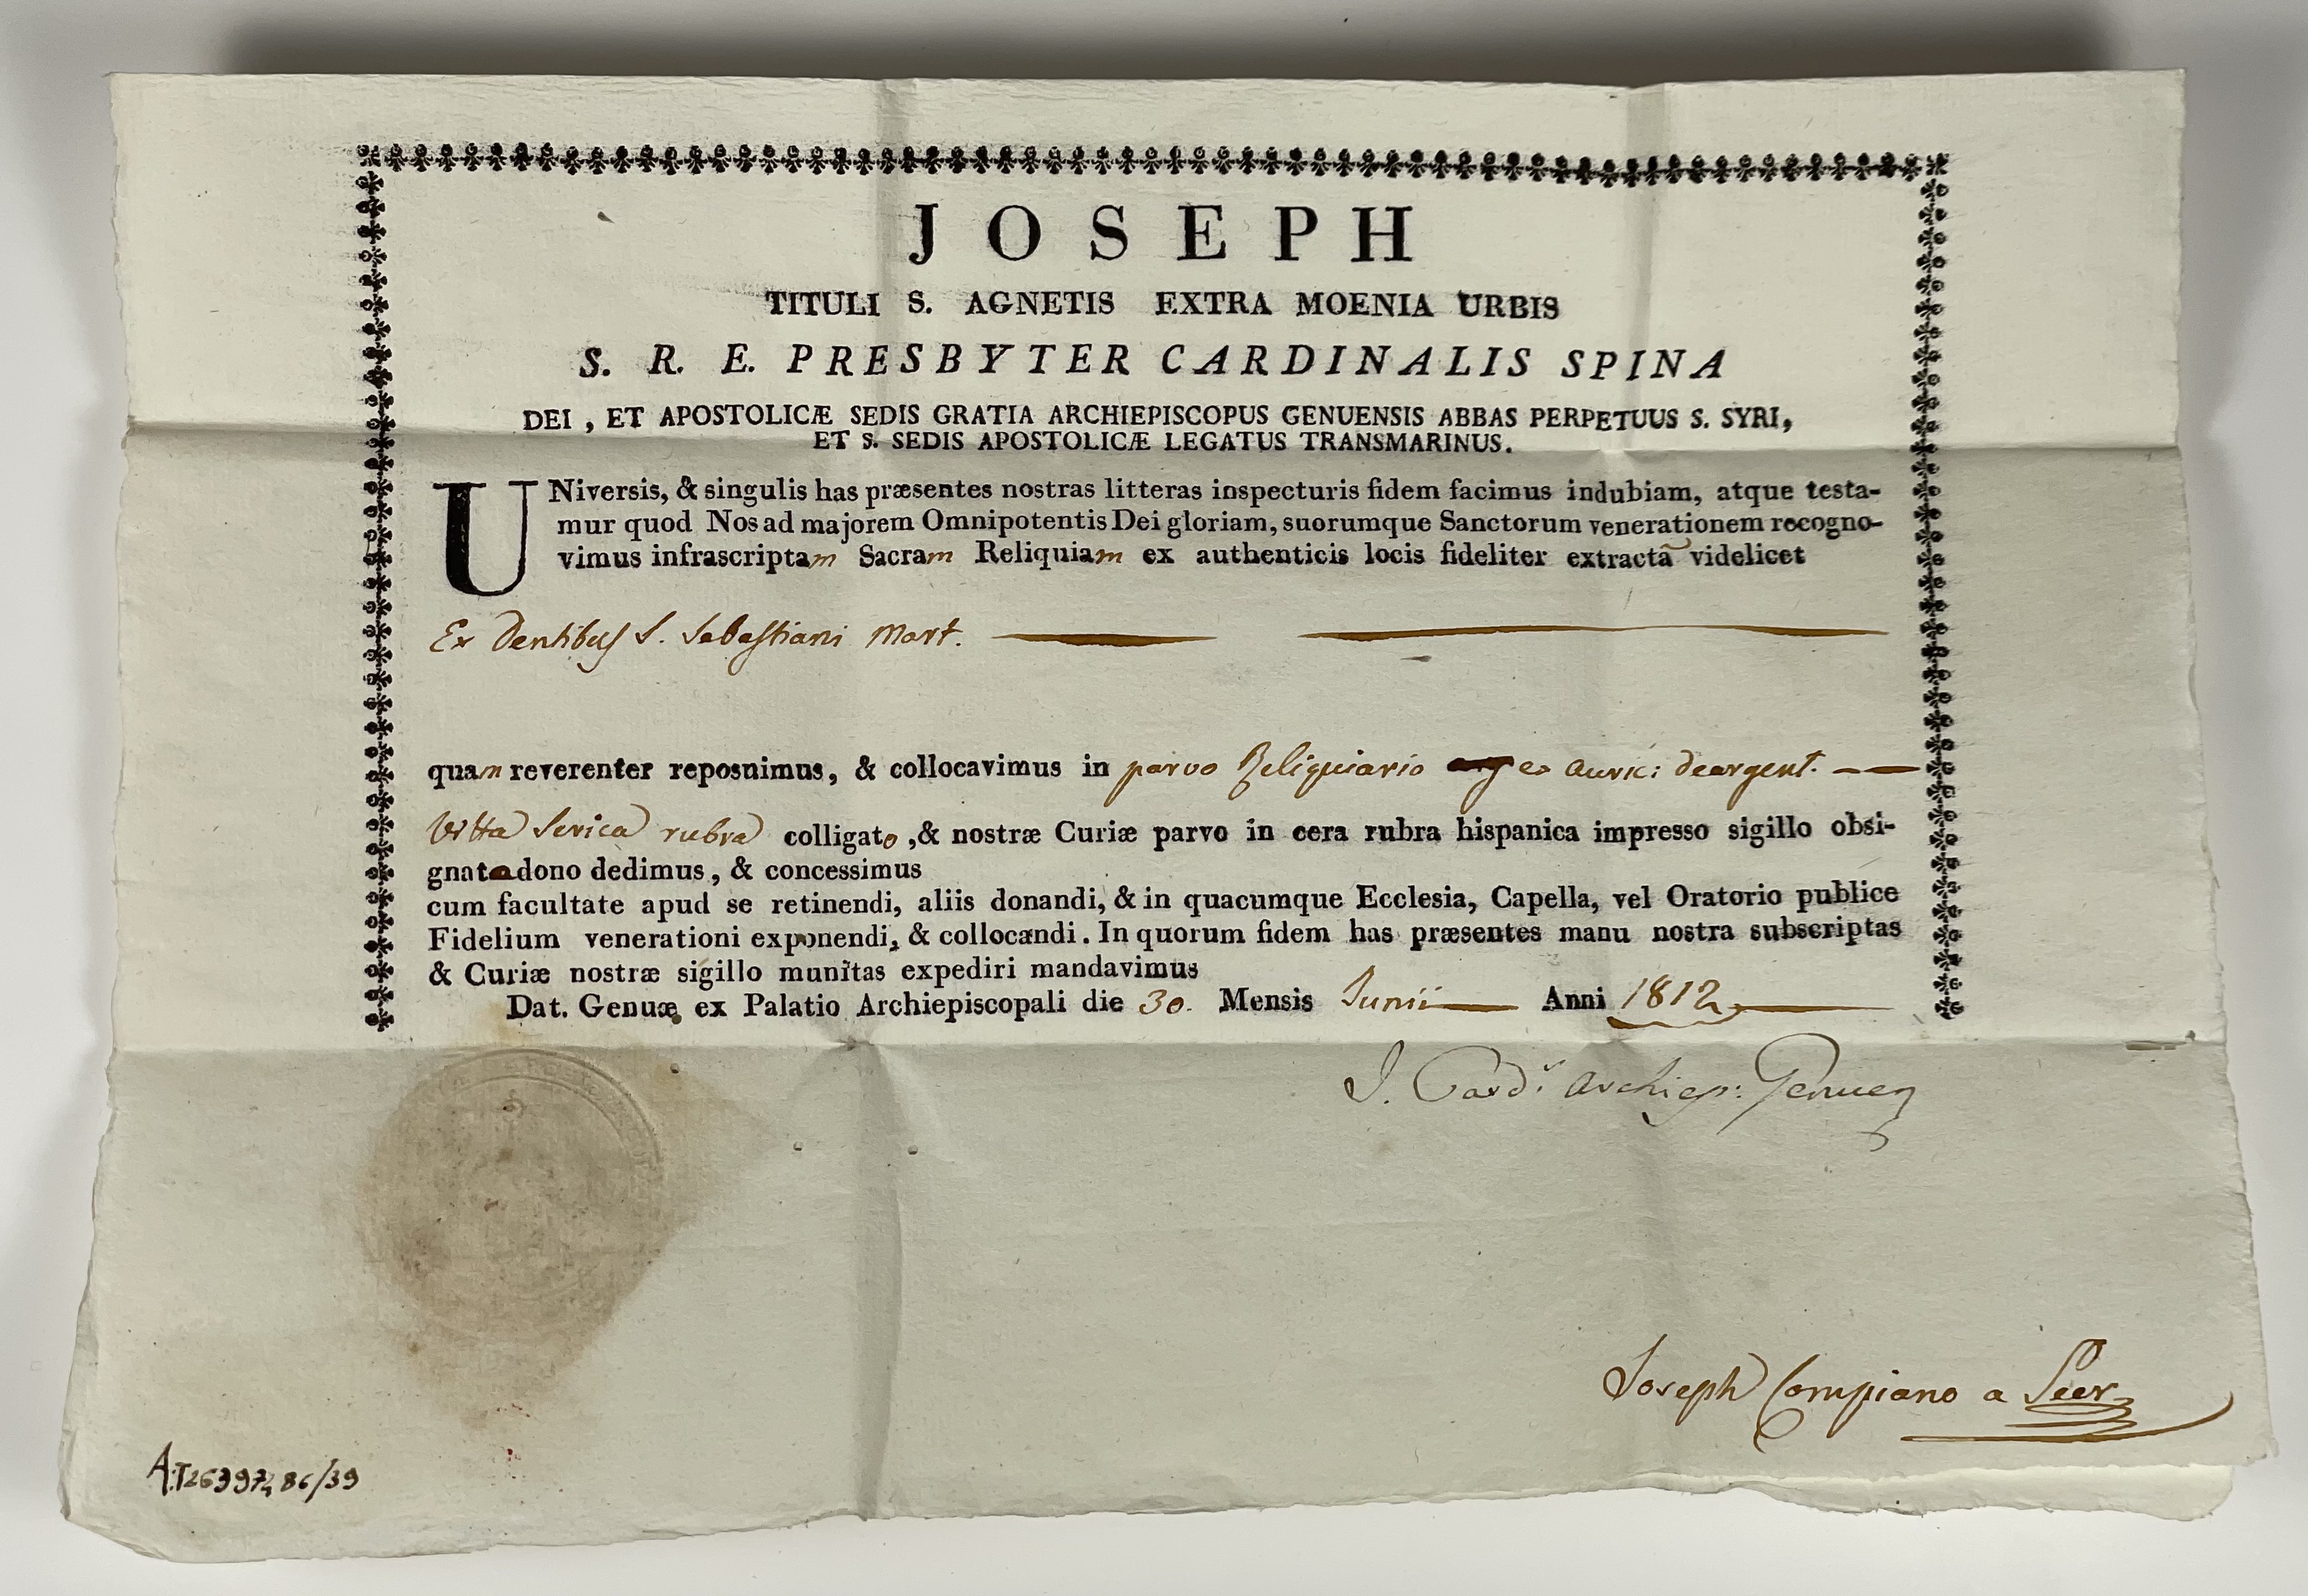 JOSEPH
TITULI S. AGNETIS EXTRA MOENIA URBIS
S. R. E. PRESBYTER CARDINALIS SPINA
DEI, ET APOSTOLICÆ SEDIS GRATIA ARCHIEPISCOPUS GENUENSIS ABBAS PERPETUUS S. SYRI,
ET S. SEDIS APOSTOLICÆ LEGATUS TRANSMARINUS.
UNiversis, & singulis has præsentes nostras litteras inspecturis fidem facimus indubiam, atque testa-
mur quod Nos ad majorem Omnipotentis Dei gloriam, suorumque Sanctorum venerationem recogno-
vimus infrascriptam Sacram Reliquiam ex authenticis locis fideliter extractã videlicet
Ex Dentibus S. Sebastiani Mart.
quam reverenter reposuimus, & collocavimus in parvo Reliquiario ex auric: deargent.
Vitta Serica rubra colligato, & nostræ Curiæ parvo in cera rubra hispanica impresso sigillo obsi-
gnato dono dedimus, & concessimus
cum facultate apud se retinendi, aliis donandi, & in quacumque Ecclesia, Capella, vel Oratorio publice
Fidelium venerationi exponendi, & collocandi. In quorum fidem has præsentes manu nostra subscriptas
& Curiæ nostræ sigillo munitas expediri mandavimus
Dat. Genuæ ex Palatio Archiepiscopali die 30. Mensis Junii Anni 1812
J. Card. Archiep: Genuen
Joseph Compiano a Secr
A:T26397486/39